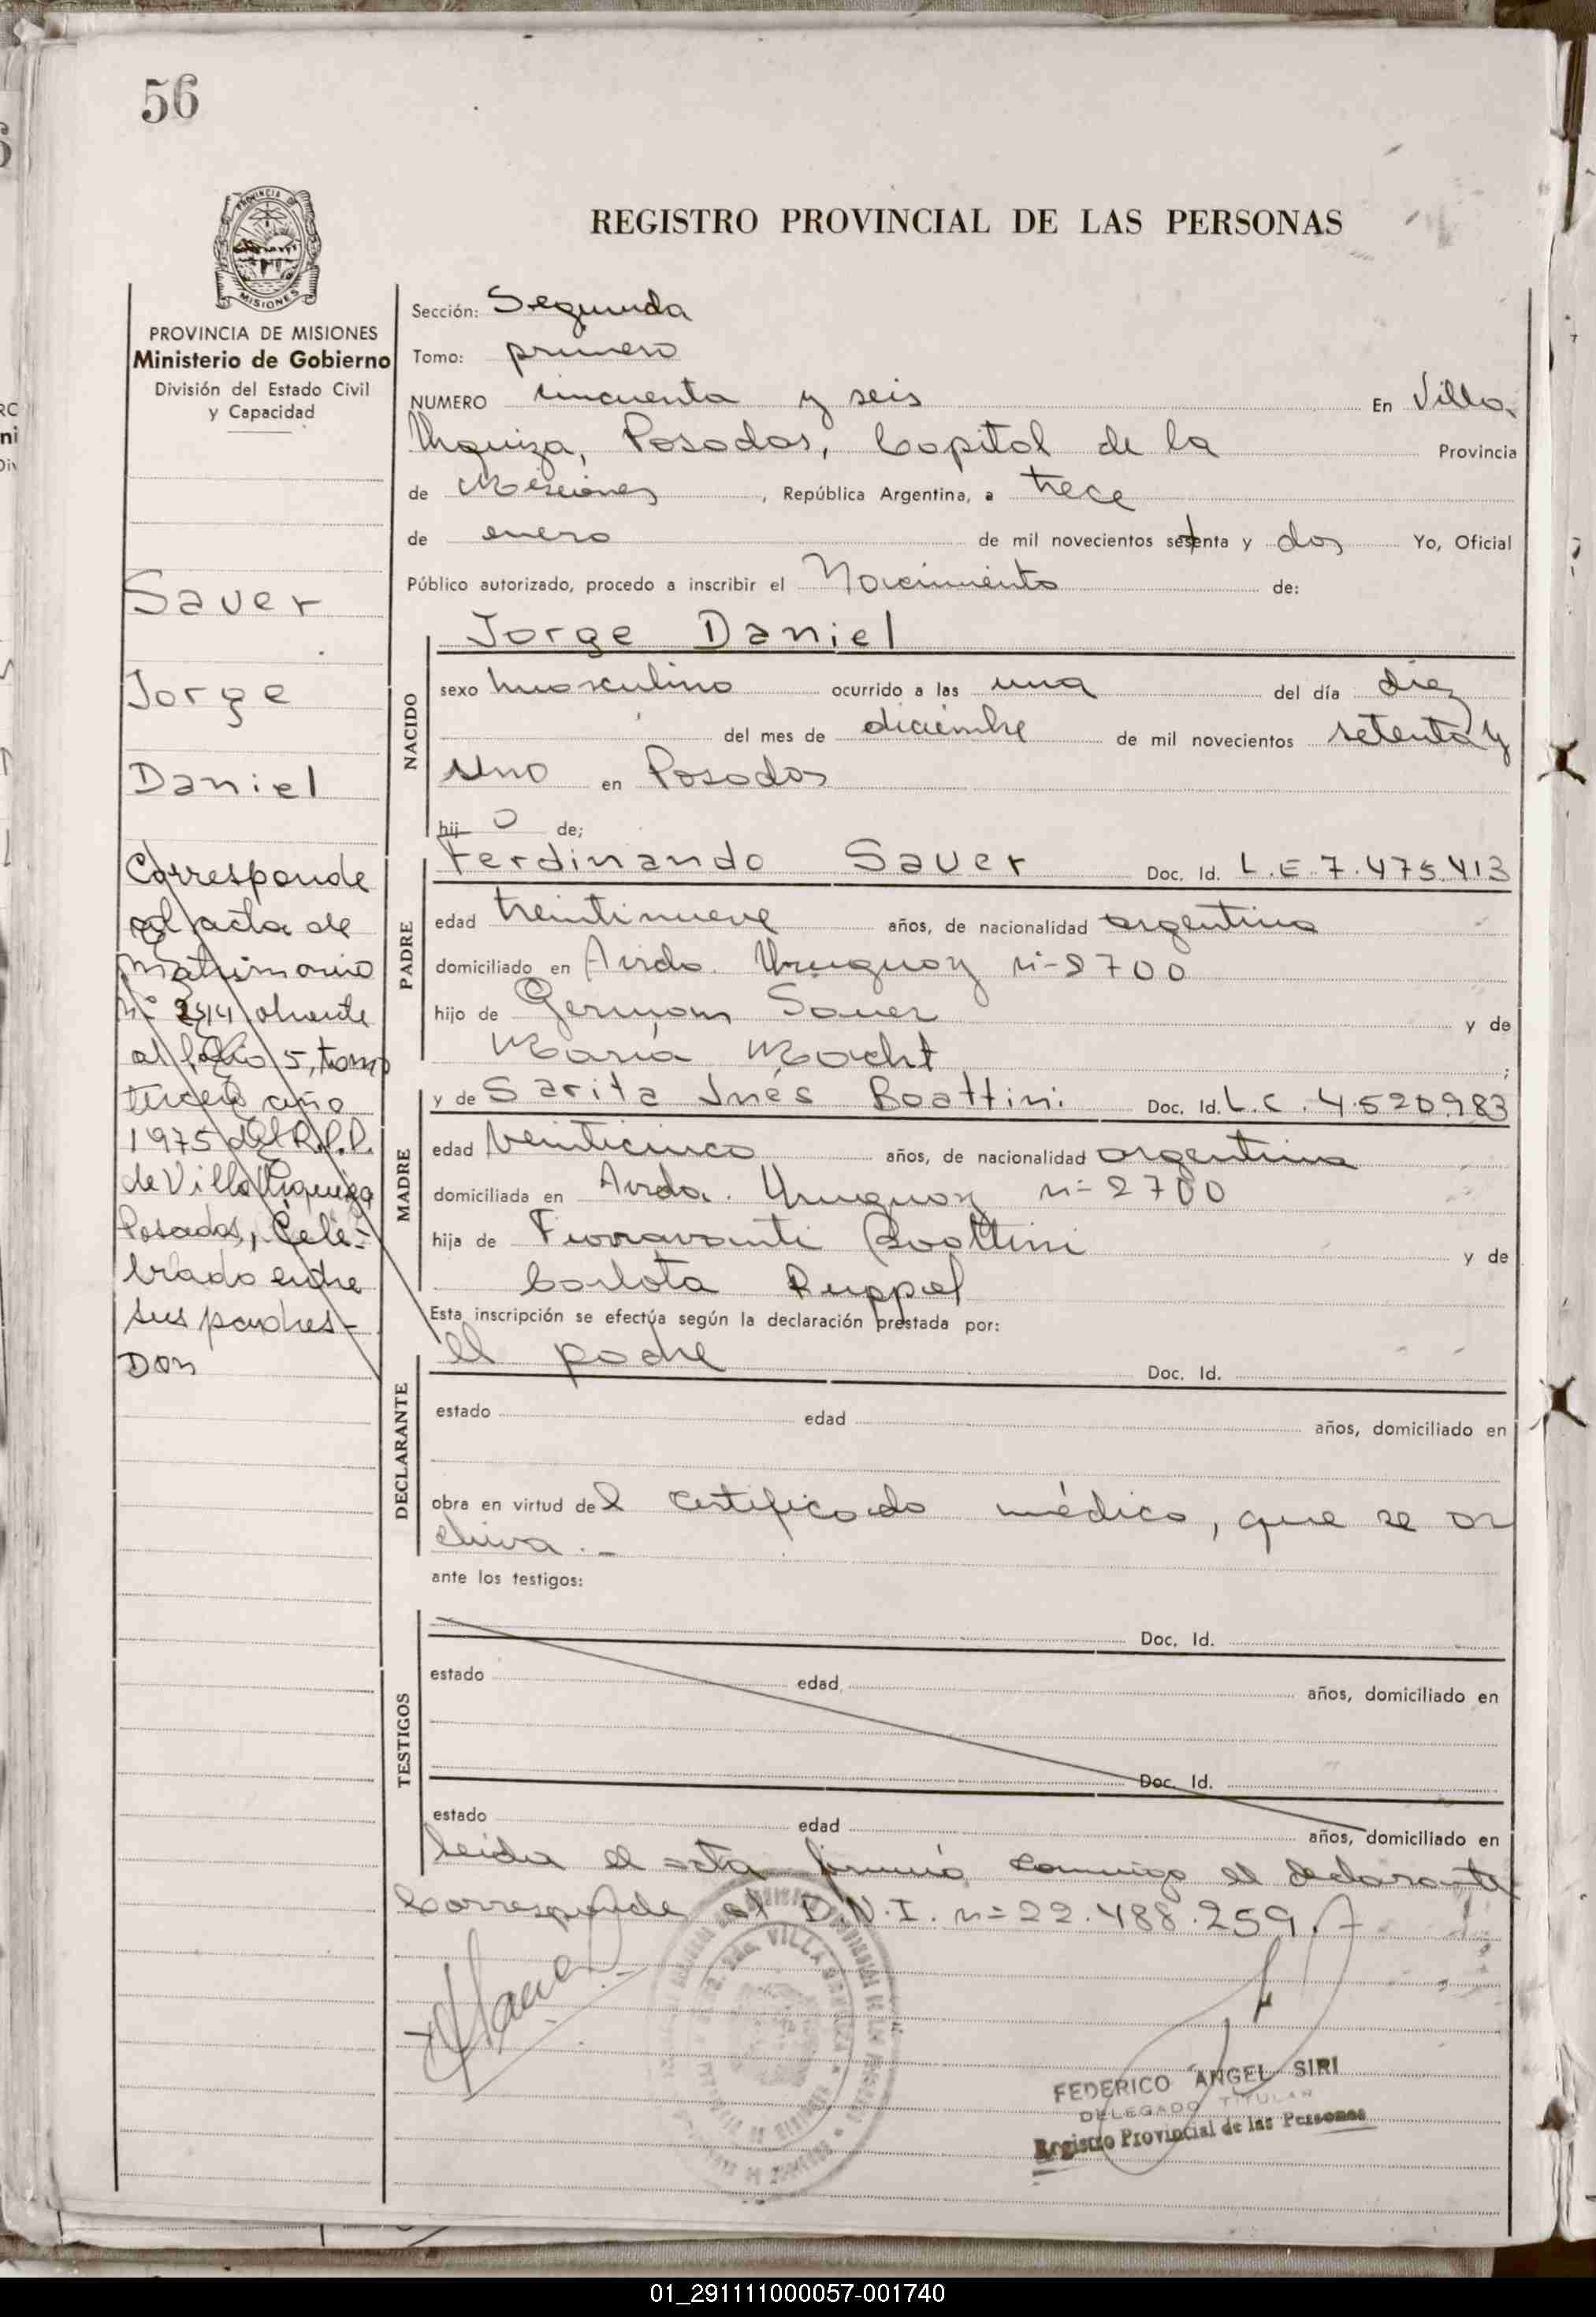 56
PROVINCIA DE
MISIONES
REGISTRO PROVINCIAL DE LAS PERSONAS
PROVINCIA DE MISIONES
Ministerio de Gobierno
División del Estado Civil
y Capacidad
Sauer
Jorge
Daniel
Corresponde
al acta de
Matrimonio
n° 244 obrante
al folio 5, tomo
tercero año
1975 del R.P.P.
de Villa Urquiza
Posadas, Cele-
brado entre
sus padres-
Don
Sección: Segunda
Tomo: primero
NUMERO cincuenta y seis En Villa
Urquiza, Posadas, Capital de la Provincia
de Misiones, República Argentina, a trece
de enero de mil novecientos setenta y dos Yo, Oficial
Público autorizado, procedo a inscribir el Nacimiento de:
NACIDO
Jorge Daniel
sexo masculino ocurrido a las una del día diez
del mes de diciembre de mil novecientos setenta y
uno en Posadas
hij o de;
PADRE
Ferdinando Sauer Doc. Id. L.E. 7.475.413
edad treintinueve años, de nacionalidad argentina
domiciliado en Avda. Uruguay n°-2700
hijo de Germam Sauer y de
María Macht ;
MADRE
y de Sarita Inés Boattini Doc. Id. L.C. 4.520.983
edad veinticinco años, de nacionalidad argentina
domiciliada en Avda. Uruguay n°-2700
hija de Fioravanti Boattini y de
Carlota Ruppel
Esta inscripción se efectúa según la declaración prestada por:
DECLARANTE
el padre Doc. Id.
estado edad años, domiciliado en
obra en virtud del certificado médico, que se ar
chiva.-
ante los testigos:
TESTIGOS
Doc. Id.
estado edad años, domiciliado en
Doc. Id.
estado edad años, domiciliado en
Leida el acta firmó conmigo el declarante
Corresponde al D.N.I. n=22.488.259.
VILLA URQUIZA
FEDERICO ANGEL SIRI
DELEGADO TITULAR
Registro Provincial de las Personas
01_291111000057-001740